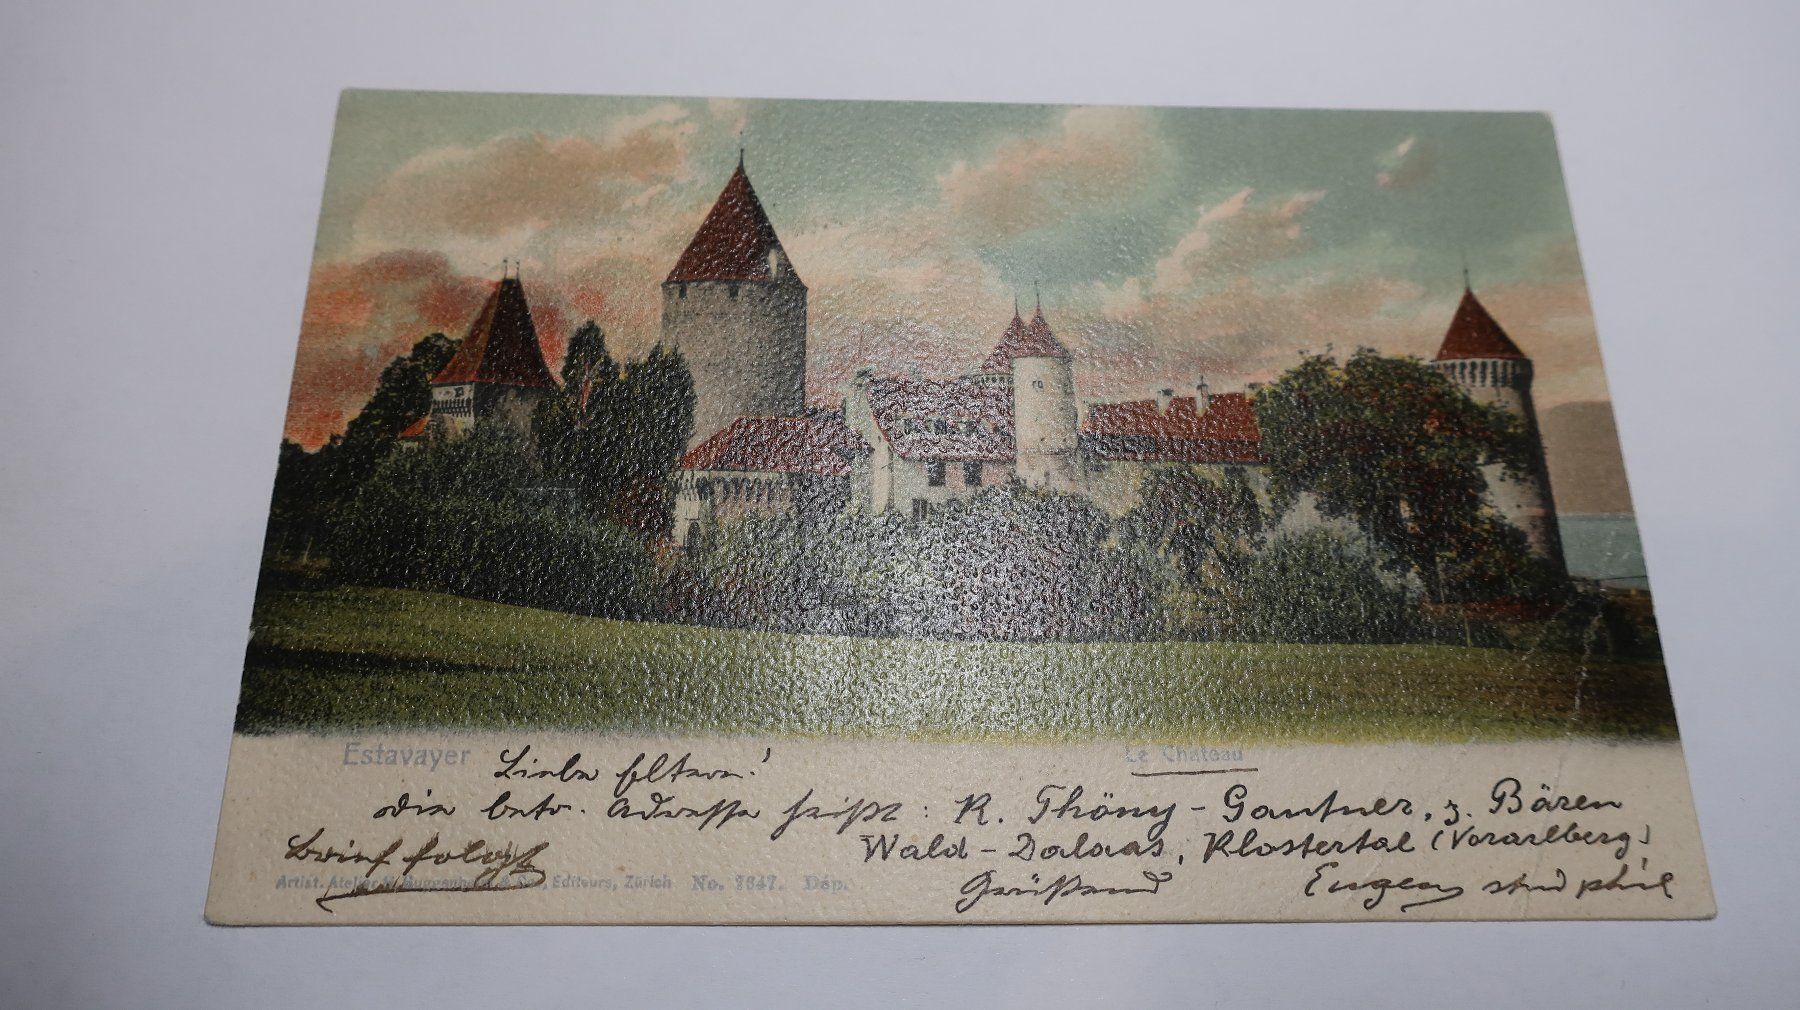 Estavayer
Le Château
Liebe Eltern!
die betr. Adresse heißt: R. Thöny - Gantner, z. Bären
Wald - Dalaas, Klostertal (Vorarlberg)
Brief folgt
Grüßend Eugen stud phil
Artist. Atelier H. Guggenheim & Co., Editeurs, Zürich No. 7647. Dép.